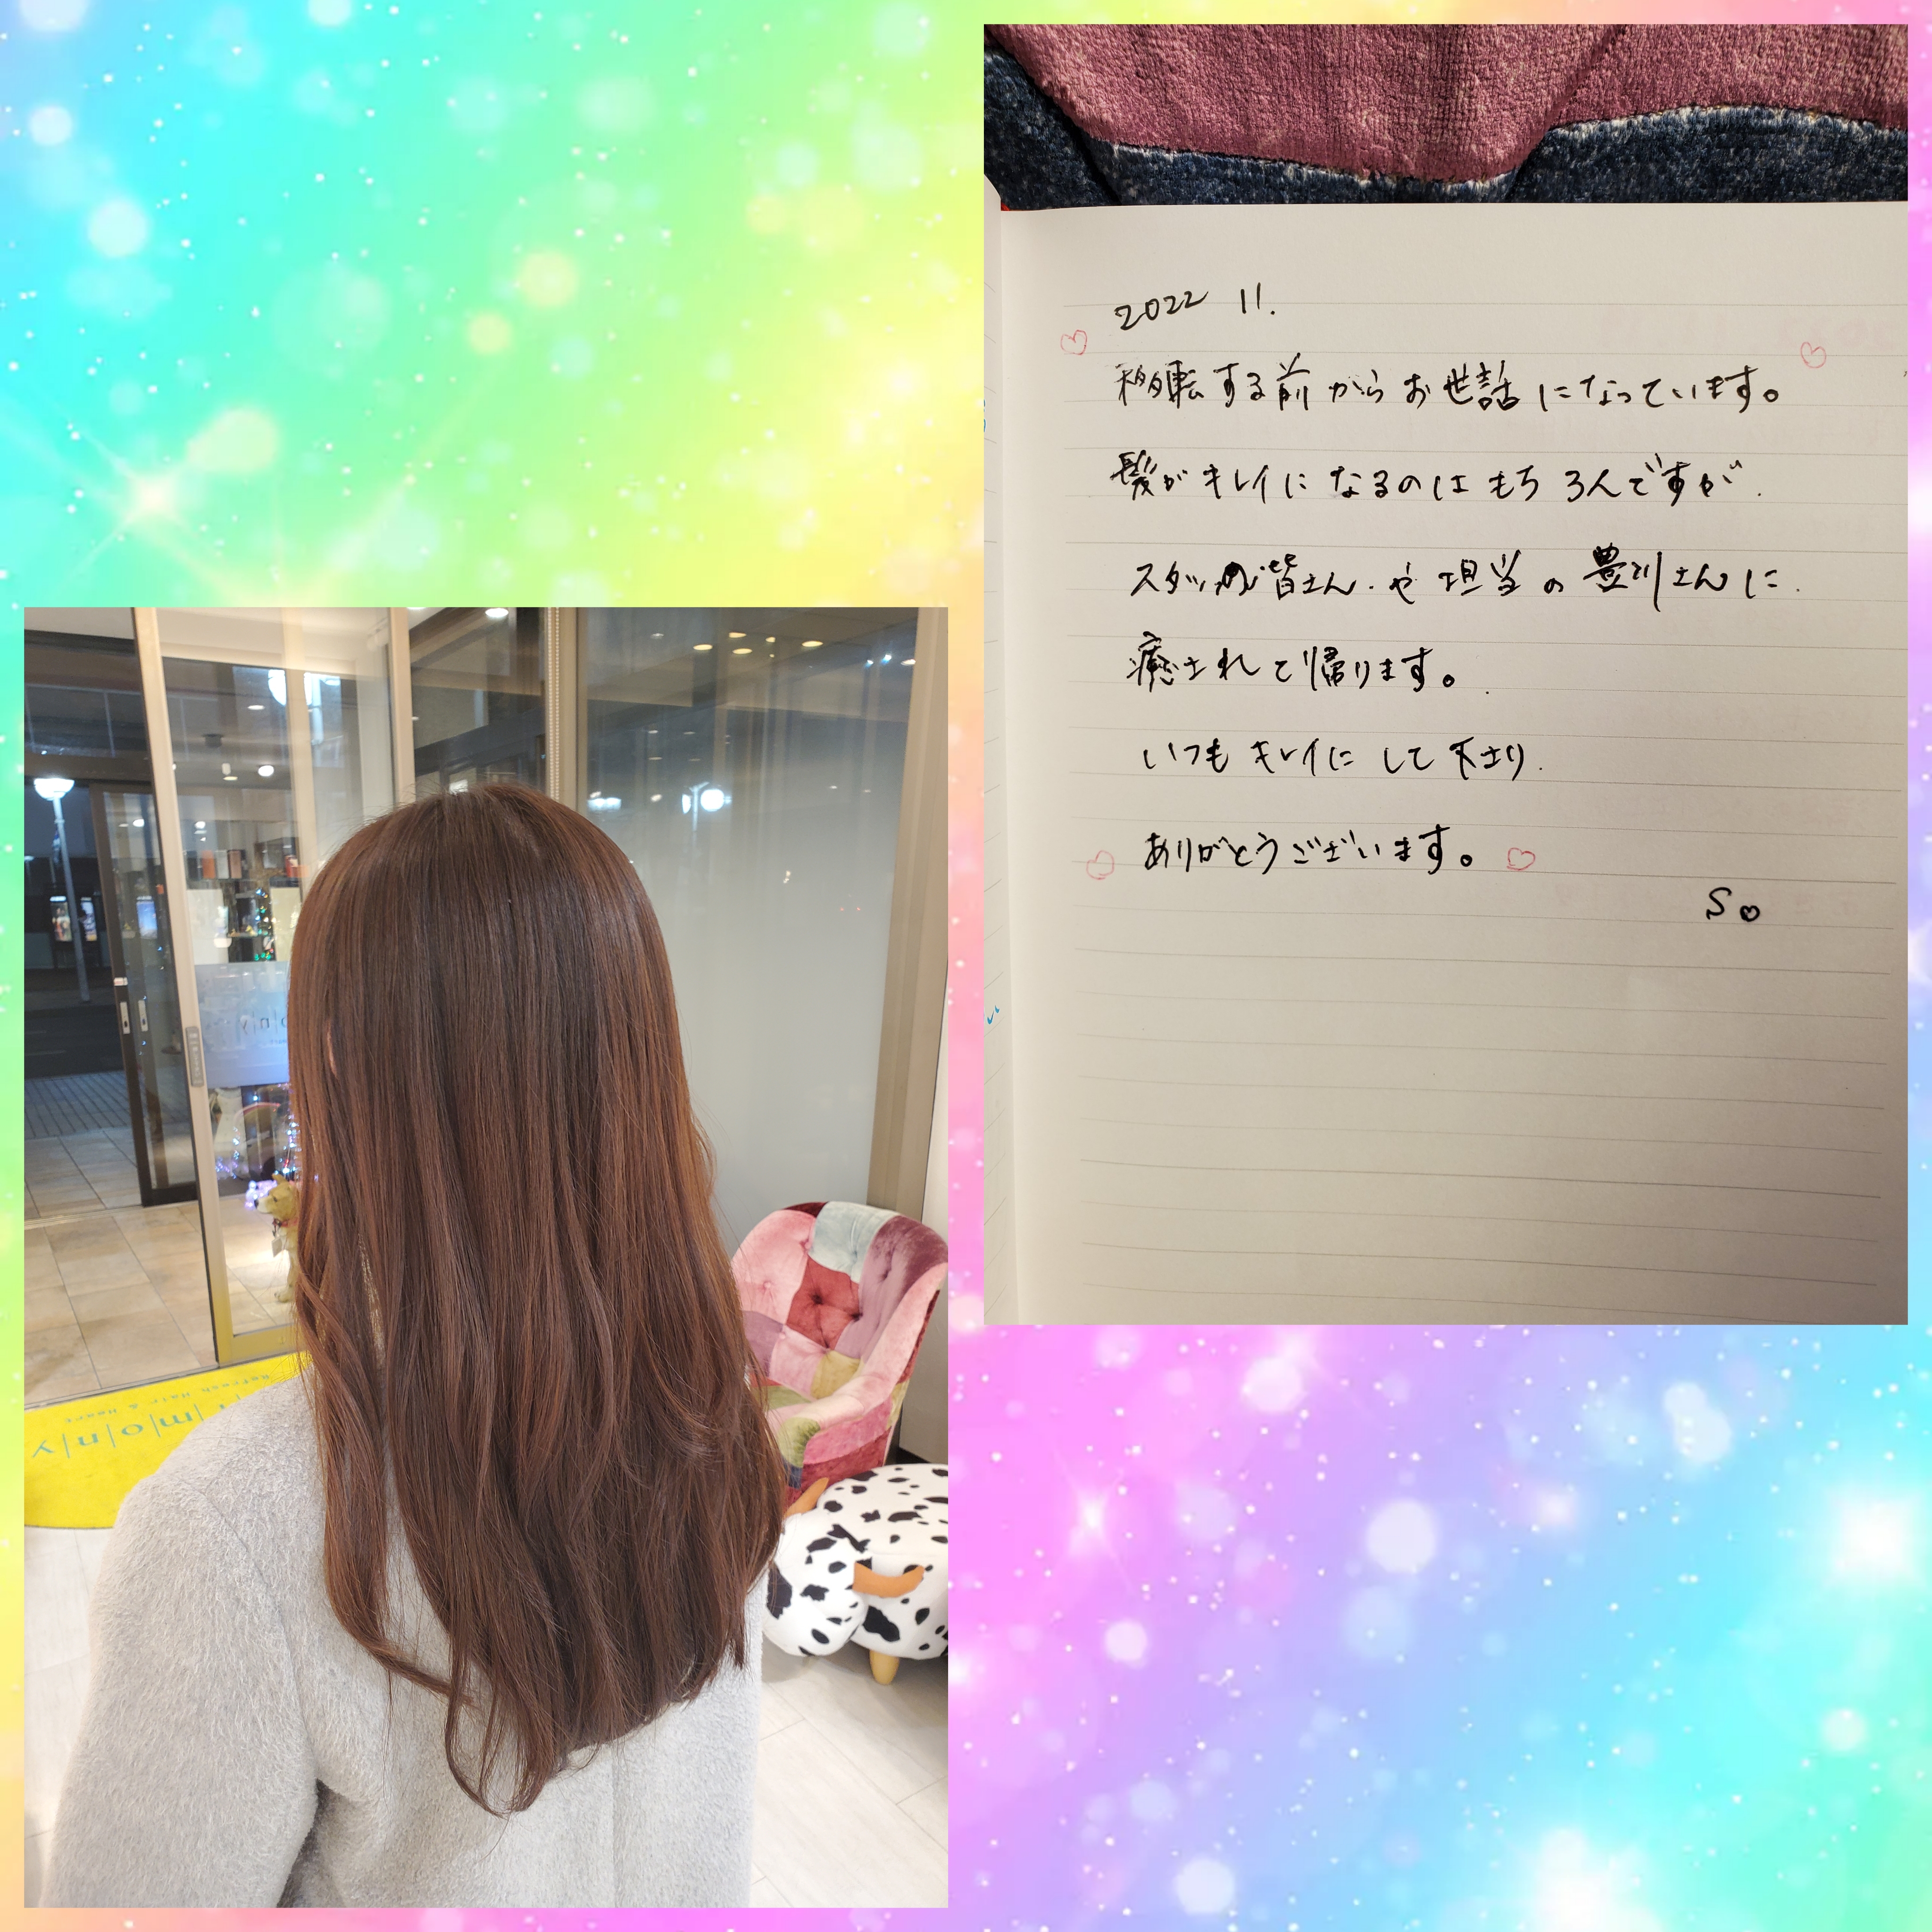 2022 11.
移転する前からお世話になっています。
髪がキレイになるのはもちろんですが
スタッフの皆さんや担当の豊川さんに
癒されて帰ります。
いつもキレイにして下さり
ありがとうございます。
S
Refresh Hair & Heart
m|o|n|y